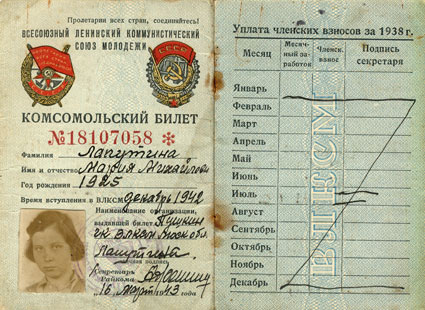 Пролетарии всех стран, соединяйтесь!
ВСЕСОЮЗНЫЙ ЛЕНИНСКИЙ КОММУНИСТИЧЕСКИЙ
СОЮЗ МОЛОДЕЖИ
КОМСОМОЛЬСКИЙ БИЛЕТ
№18107058 *
Фамилия Лапутина
Имя и отчество Мария Михайловна
Год рождения 1925
Время вступления в ВЛКСМ декабрь 1942
Наименование организации,
выдавшей билет Пушкин
гк ВЛКСМ Моск обл.
личная подпись
Секретарь
Райкома
"16" март 1943 года
Уплата членских взносов за 1938 г.
Месяц
Месяч-
ный за-
работок
Членск.
взнос
Подпись
секретаря
Январь
Февраль
Март
Апрель
Май
Июнь
Июль
Август
Сентябрь
Октябрь
Ноябрь
Декабрь
ВЛКСМ